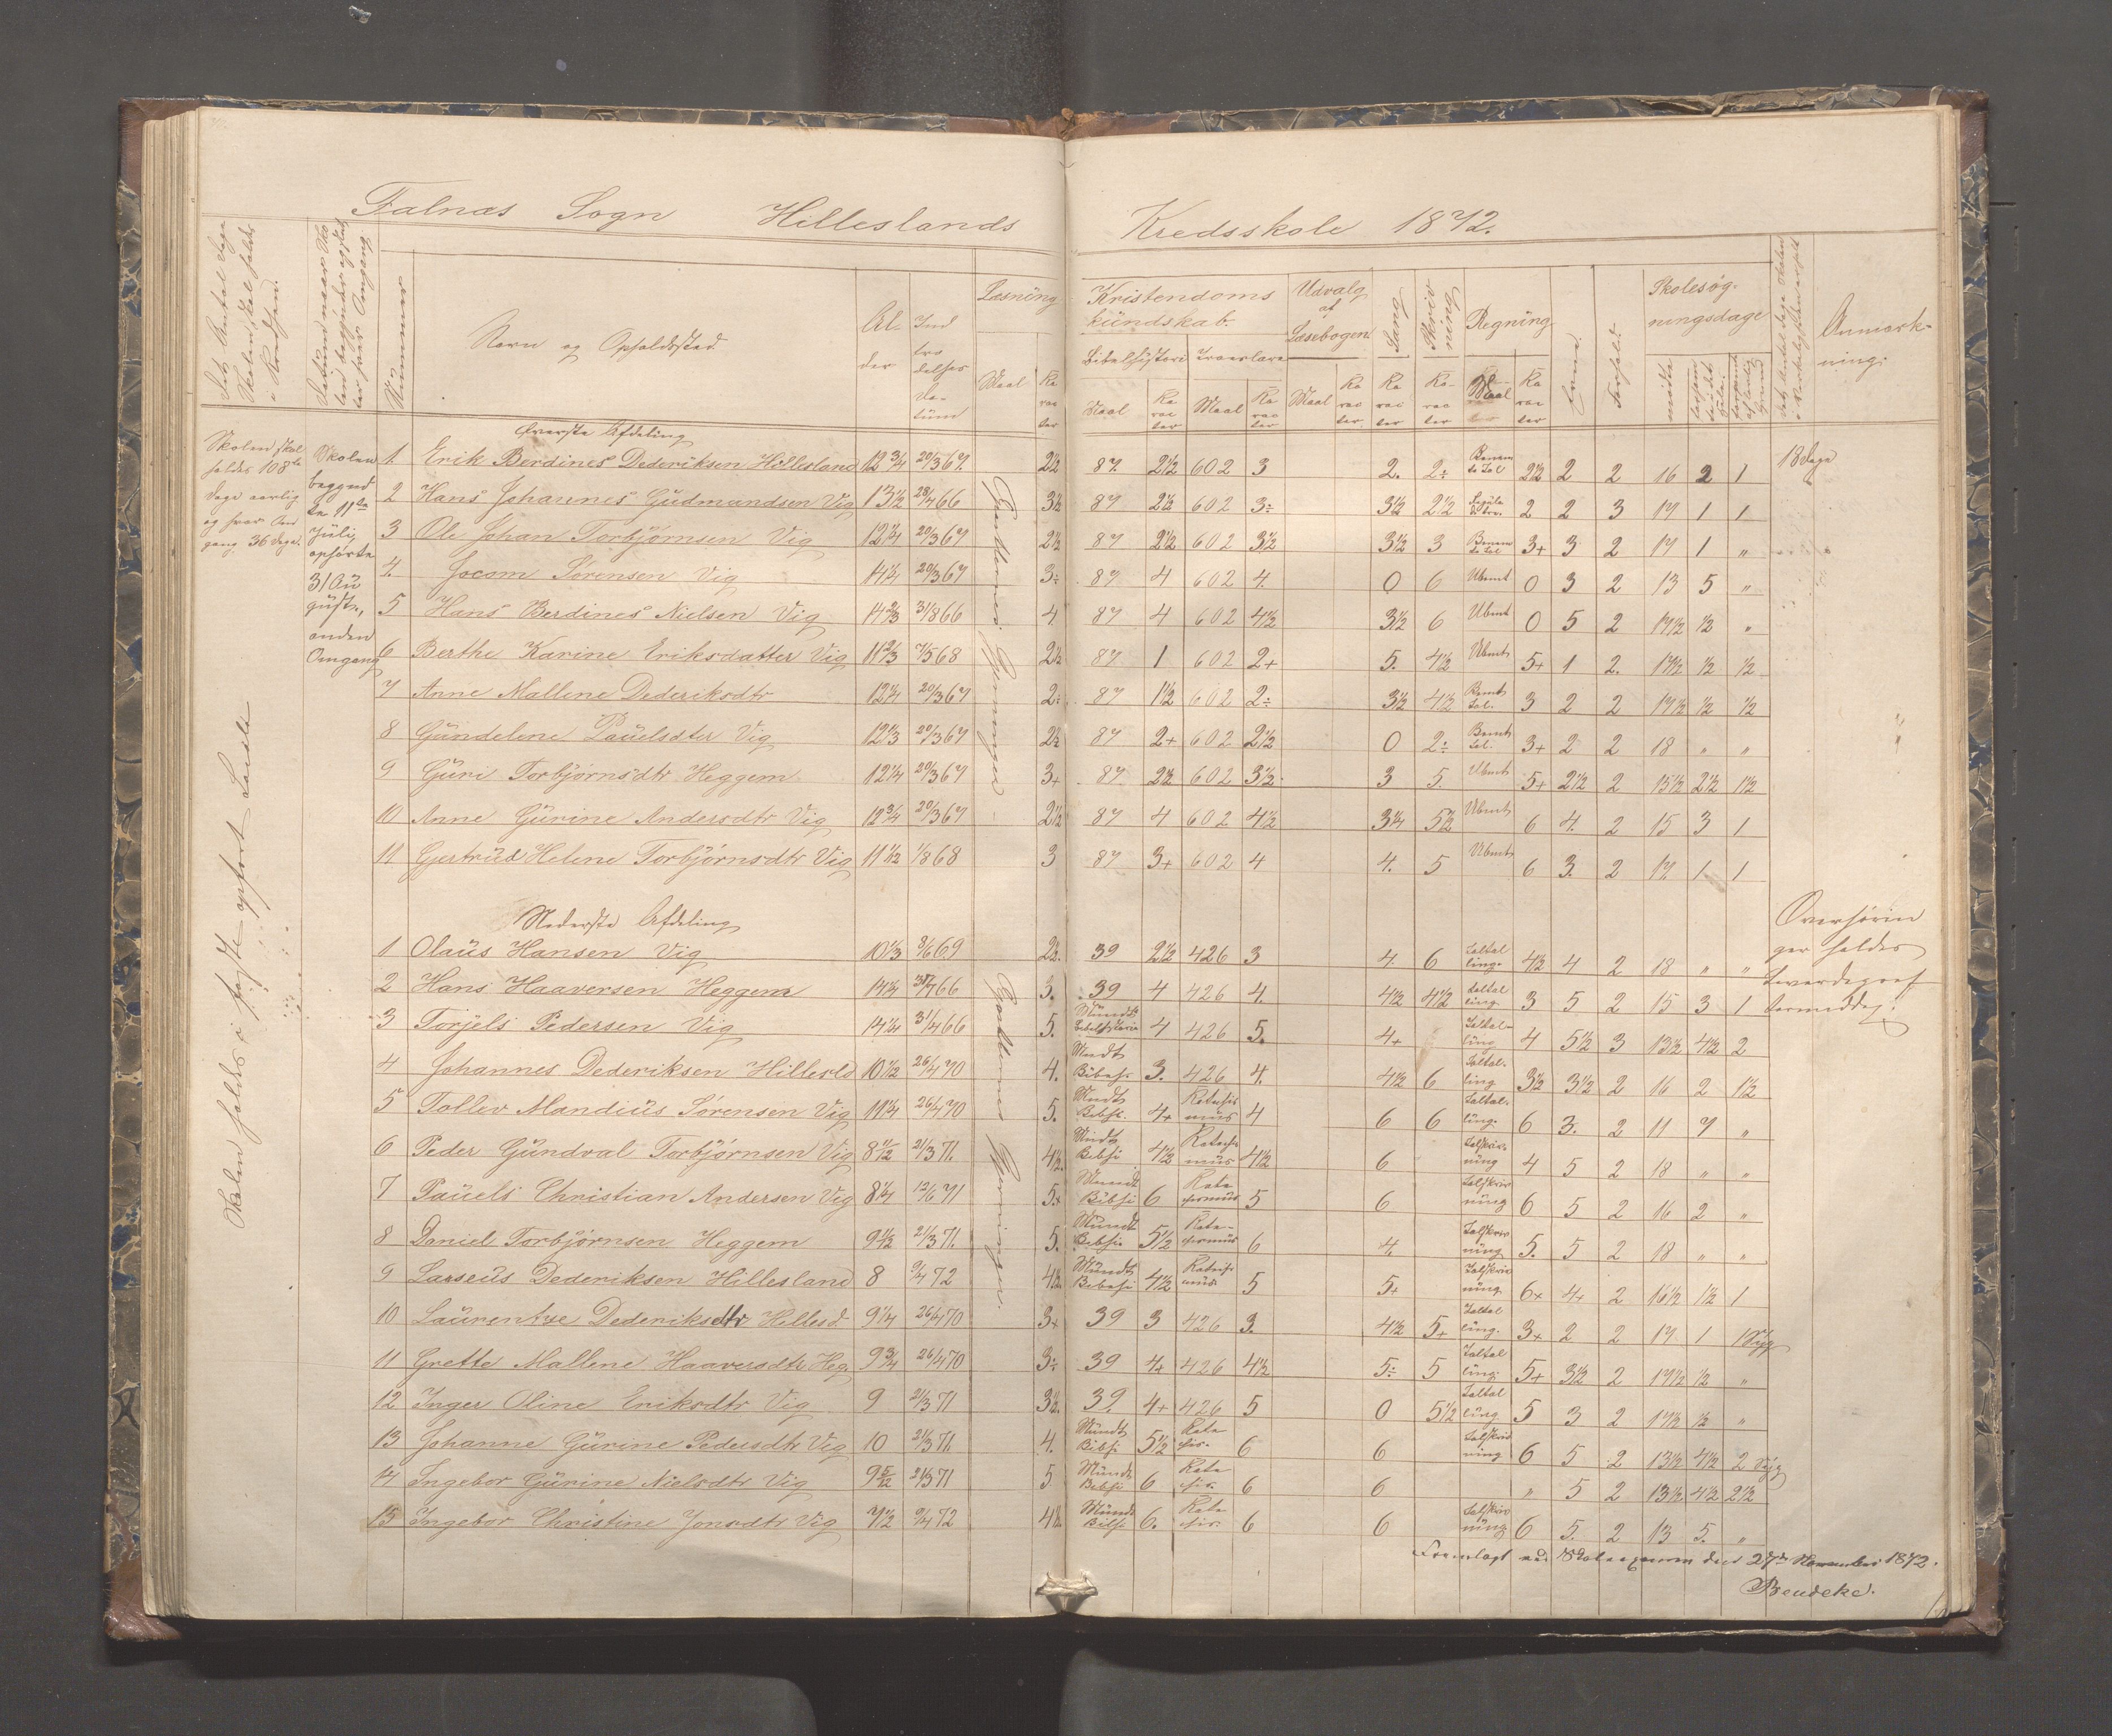 Falnæs Sogn Hilleslands Kredsskole 1872.
Nummer
Navn og Opholdssted
Al-
der
Ind
træ
delses
Da-
tum
Læsning
Maal
Ka
rac
ter
Kristendoms
kundskab.
Bibelhistorie
Troeslære
Maal
Ka
rac
ter
Maal
Ka
rac
ter
Udvalg
af
Læsebogen
Maal
Ka
rac
ter
Sang
Ka
rac
ter
Skriv
ning
Ka-
rac
ter
Regning
Maal
Ka
rac
ter
Evner
Forhold
Skolesøg-
ningsdage
mødte
Anmærk-
ning.
Skolen skal
holdes 108
Dage aarlig
og hver Om
gang 36 Dage.
Skolen
begynd
te 11te
Juli,
ophørte
31 Au
gust,
anden
Omgang
Skolen holdes i faste opført Locale
Øverste Afdeling
1. Erik Berdines Dederiksen Hillesland 12 3/4 20/3 67. 2½ 87. 2½ 602 3 2. 2÷ Benævnte Tal 2½ 2 2 16 2 1 18 Dage
2 Hans Johannes Gudmundsen Vig 13½ 28/4 66 3½ 87 2½ 602 3÷ 3½ 2½ 2 2 3 17 1 1
3 Ole Johan Torbjørnsen Vig 12¼ 20/3 67 2½ 87 2½ 602 3½ 3½ 3 Benævnte Tal 3+ 3 2 17 1 "
4. Jocom Sørensen Vig 14¼ 20/3 67 3÷ 87 4 602 4. 0 6 Ubmt 0 3 2 13 5 "
5 Hans Berdines Nielsen Vig 14 2/3 31/8 66 4 87 4 602 4½ 3½ 6 Ubmt 0 5 2 17½ ½ "
6 Berthe Karine Eriksdatter Vig 11 2/3 7/5 68 2½ 87 1 602 2+ 5. 4½ Ubmt 5+ 1 2. 17½ ½ ½
7 Anne Mallene Dederiksdtr 12¼ 20/3 67 2÷ 87 1½ 602 2÷ 3½ 4½ Bemt Tal. 3 2 2 17½ ½ ½
8 Gundelene Pauelsdter Vig 12 1/3 20/3 67 2½ 87 2+ 602 2½ 0 2÷ Bemt Tal. 3+ 2 2 18 " "
9 Guri Torbjørnsdtr Heggem 12¼ 20/3 67 3+ 87 2½ 602 3½ 3 5. Ubmt 5+ 2½ 2 15½ 2½ 1½
10 Anne Gurine Andersdtr Vig 12 3/4 20/3 67 2½ 87 4 602 4½ 3¼ 5½ Ubmt 6 4. 2 15 3 1
11 Gjertrud Helene Torbjørnsdtr Vig 11 1/12 1/8 68 3 87 3+ 602 4 4. 5 Ubmt 6 3. 2 17 1 1
Gartneres Gjerninger
Nederste Afdeling
1 Olaus Hansen Vig 10 1/3 8/6 69 2½. 39 2½ 426 3 4. 6 Taltælling. 4½ 4 2 18 " "
2 Hans Haaversen Heggem 14¼ 66 3. 39 4 426 4. 4½ 4½ Taltælling 3 5 2 15 3 1
3 Torjels Pedersen Vig 14¼ 31/4 66 5. Mundt Bibelhistorie 4 426 5. 4+ Taltælling 4 5½ 3 13½ 4½ 2
4 Johannes Dederiksen Hillesld 10½ 26/4 70 4. Mundt Bibehi. 3. 426 4. 4½ 6 Taltælling 3½ 3½ 2 16 2 1½
5 Tollev Mandius Sørensen Vig 11¼ 26/4 70 5. Mundt Bibhi. 4+ Katechismus 4 6 6 Taltælling. 6 3. 2 11 7 "
6 Peder Gundval Torbjørnsen Vig 21/3 71. 4½. Mundt Bibhi 4½ Katechismus 4½ 6 Talskrivning 4 5 2 18 " "
7 Pauels Christian Andersen Vig 8¼ 12/6 71 5+ Mundt Bibhi 6 Katechismus 5 6 Talskrivning 6 5 2 16 2 "
8 Daniel Torbjørnsen Heggem 21/3 71. 5. Mundt Bibhi 5½ Katechismus 6 4. Talskrivning 5. 5 2 18 " "
9 Larseus Dederiksen Hillesland 8 9/4 72 4½ Mundt Bibehi 4½ Katechismus 5 5+ Talskrivning 6+ 4+ 2 16½ 1½ 1
10 Laurentze Dederiksdtr Hillesd 9¼ 26/4 70 3+ 39 3 426 3. 4½ 5+ Taltælling. 3+ 2 2 17 1 1 Syg
11 Grette Mallene Haaversdtr Heg 9 3/4 26/4 70 3÷ 39 4+ 426 4½ 5÷ 5 Taltælling. 5+ 3½ 2 17½ ½ "
12 Inger Oline Eriksdtr Vig 9 21/3 71 3½. 39. 4+ 426 5 0 5½ Taltælling 5 3 2 17½ ½ "
13 Johanne Gurine Pedersdtr Vig 10 21/3 71. 4. Mundt Bibhi 5½ Katechis. 6 6 Talskrivning 6 5 2 13½ 4½ 2 Syg
14 Ingebor Gurine Nielsdtr Vig 9 5/12 21/3 71 5. Mundt Bibhi 6 Katechis. 6 6 " 5 2 13½ 4½ 2½
15 Ingebor Christine Jonsdtr Vig 7½ 9/4 72 4½. Mundt Bibhi 6. Katechis. 6 6 Talskrivning 6 5. 2 13 5. "
Gartneres Gjerninger.
Overhørin
ger holdes
hverdagsef
termiddag.
Fremlagt ved Skoleexamen den 27de November 1872.
Bendeke.